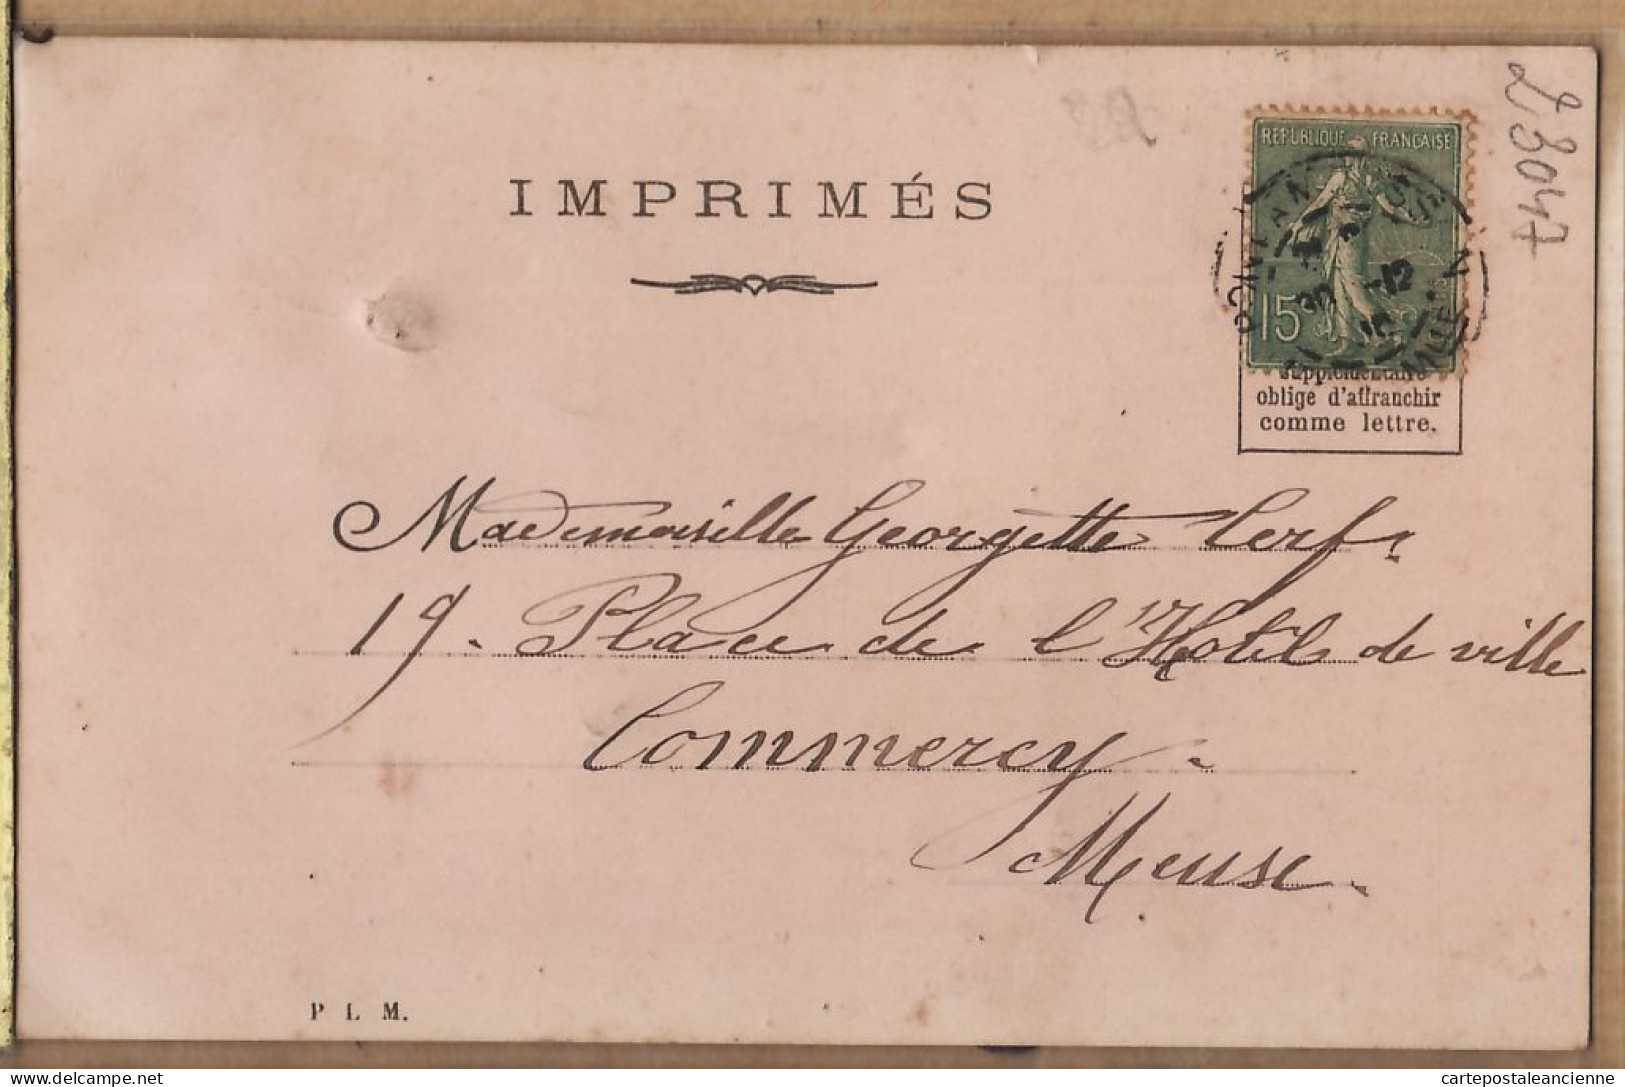 L3047
IMPRIMÉS
RÉPUBLIQUE FRANÇAISE
15
supplémentaire
oblige d'affranchir
comme lettre.
Mademoiselle Georgette Cerf.
19. Place de l'Hotel de ville
Commercy.
Meuse.
P L M.
delcampe.net
cartepostaleancienne